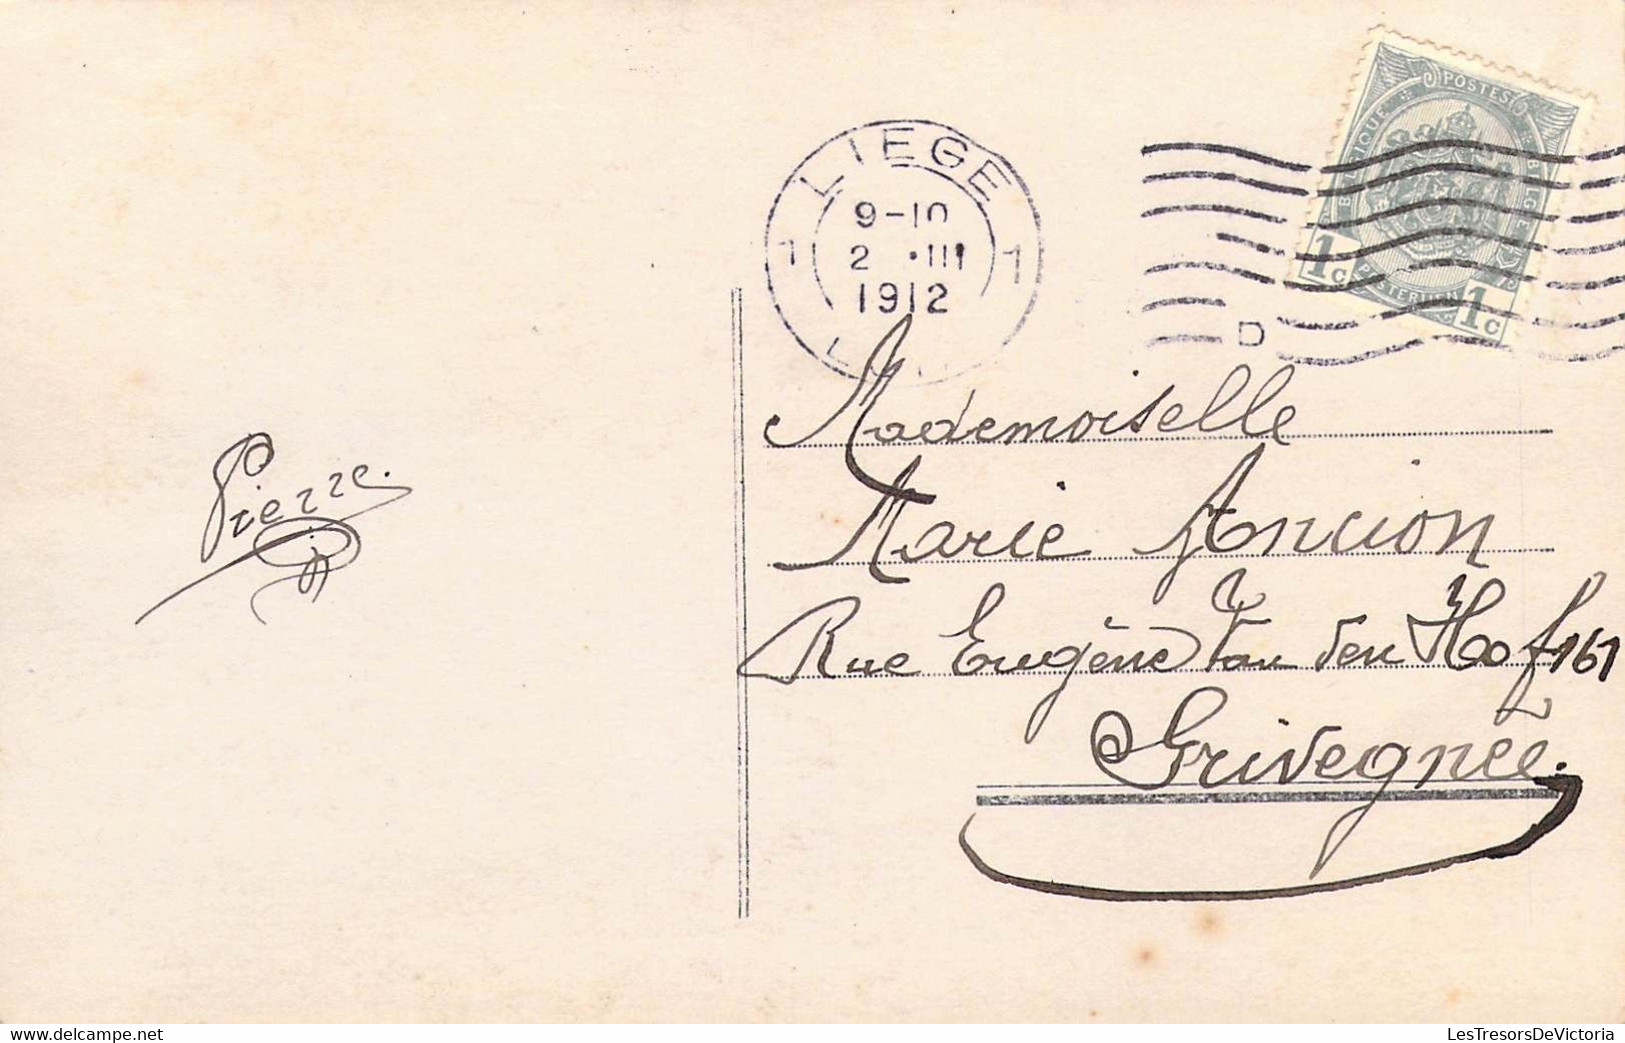 POSTES
BELGIQUE BELGIE
1c 1c
LIEGE
1 9-10 1
2 •III
1912
D
Mademoiselle
Marie Ancion
Rue Eugène Van den Hof 161
Grivegnée.
Pierre.
Delcampe.net
LesTresorsDeVictoria